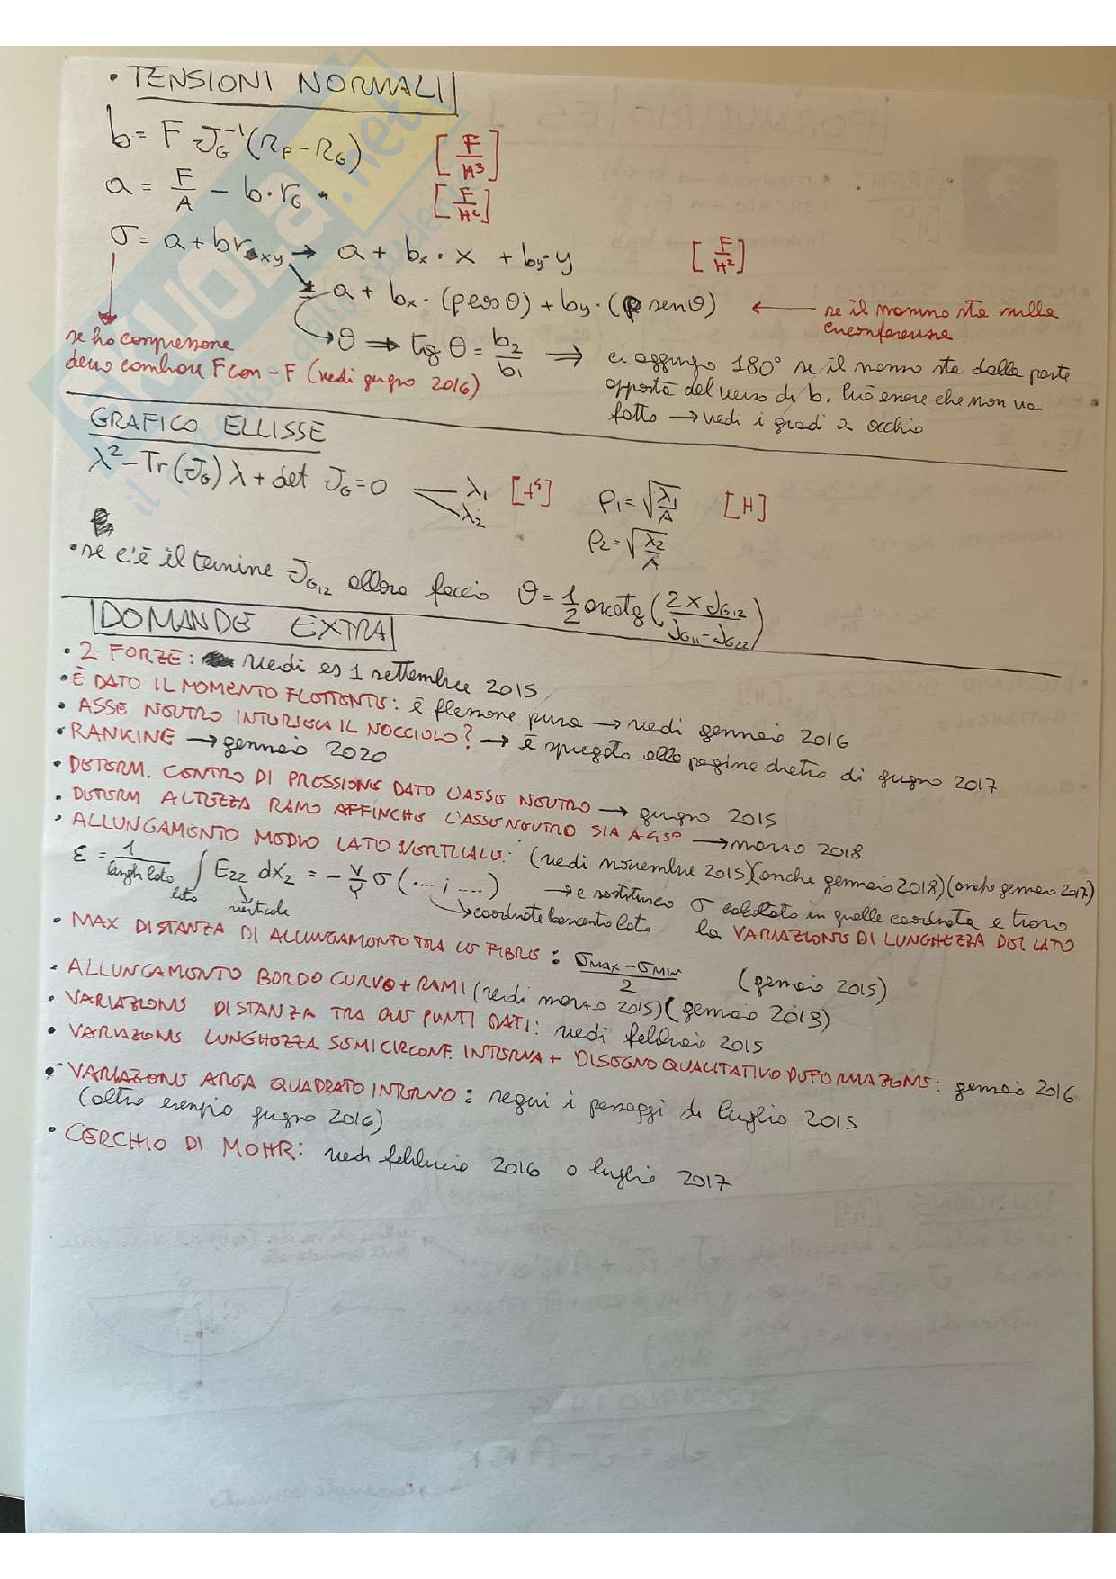 • TENSIONI NORMALI
b = F J_G^-1 (r_F - r_G) [F/H³]
a = F/A - b·r_G [F/H²]
σ = a + b r_xy → a + bx · x + by · y [F/H²]
± a + bx · (ρ cos θ) + by · (ρ sen θ) ← se il massimo sta sulla circonferenza
se ho compressione
devo cambiare F con -F (vedi giugno 2016)
θ → tg θ = b2/b1 ⇒ ci aggiungo 180° se il massimo sta dalla parte
opposta del verso di b. Può essere che non va
fatto → vedi i gradi a occhio
GRAFICO ELLISSE
λ² - Tr(J_G) λ + det J_G = 0 λ1 λ2 ρ1 = √(λ1/A) [H]
ρ2 = √(λ2/A)
• se c'è il termine J_G12 allora faccio θ = 1/2 arcotg (2 x J_G12 / J_G11 - J_G22)
DOMANDE EXTRA
• 2 FORZE: vedi es 1 settembre 2015
• È DATO IL MOMENTO FLETTENTE: è flessione pura → vedi gennaio 2016
• ASSE NEUTRO INTERSECA IL NOCCIOLO? → È spiegato alla pagina dietro di giugno 2017
• RANKINE → gennaio 2020
• DETERM. CENTRO DI PRESSIONE DATO L'ASSE NEUTRO → giugno 2015
• DETERM ALTEZZA RAMO AFFINCHE L'ASSE NEUTRO SIA A → marzo 2018
• ALLUNGAMENTO MEDIO LATO VERTICALE: (vedi novembre 2015)(anche gennaio 2018)(anche gennaio 2017)
ε = 1/lungh lato ∫lato E22 dx2 = - ν/Y σ (... ; ....) → e sostituisco σ calcolato in quelle coordinate e trovo
verticale → coordinate lato la VARIAZIONE DI LUNGHEZZA DEL LATO
• MAX DISTANZA DI ALLUNGAMENTO TRA LE FIBRE: σMAX - σMIN / 2 (gennaio 2015)
• ALLUNGAMENTO BORDO CURVO + RAMI (vedi marzo 2015)(gennaio 2013)
• VARIAZIONE DISTANZA TRA DUE PUNTI DATI: vedi febbraio 2015
• VARIAZIONE LUNGHEZZA SEMICIRCONF. INTERNA + DISEGNO QUALITATIVO DEFORMAZIONE: gennaio 2016
• VARIAZIONE AREA QUADRATO INTERNO: segui i passaggi di luglio 2015
(altro esempio giugno 2016)
• CERCHIO DI MOHR: vedi febbraio 2016 o luglio 2017